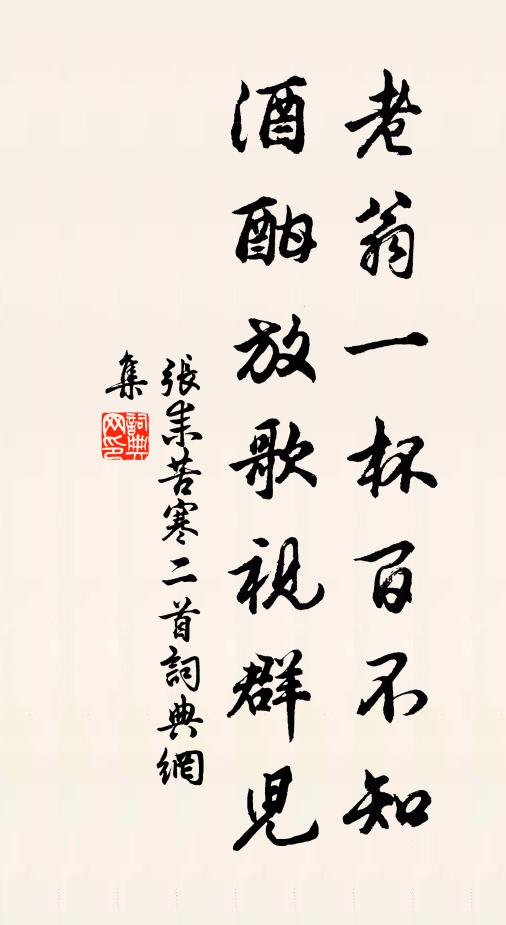 老翁一杯百不知
酒酣放歌視群児
張耒苦寒二首詞典網
集
詞典
网印